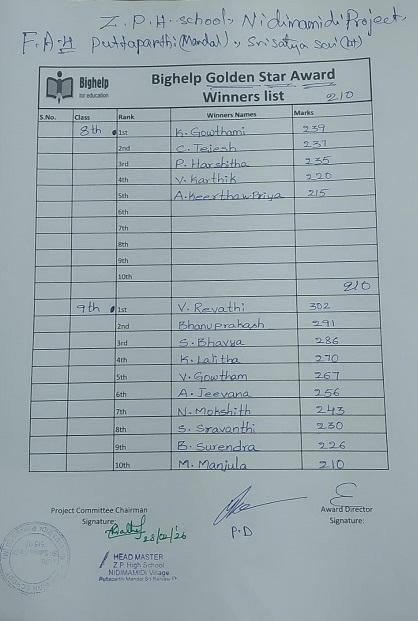 Z.P.H. school, Nidimamidi Project,
F.A-4 Puttaparthi (Mandal), Sri Satya Sai (Dt)
Bighelp
for education
Bighelp Golden Star Award
Winners list 210
S.No. Class Rank Winners Names Marks
8th 1st K. Gowthami 239
2nd C. Tejesh 237
3rd P. Harshitha 235
4th V. Karthik 220
5th A. Keerthana Priya 215
6th
7th
8th
9th
10th
210
9th 1st V. Revathi 302
2nd Bhanu prakash 291
3rd S. Bhavya 286
4th K. Lalitha 270
5th V. Gowtham 267
6th A. Jeevana 256
7th N. Mokshith 243
8th S. Sravanthi 230
9th B. Surendra 226
10th M. Manjula 210
Project Committee Chairman
Signature:
Award Director
Signature:
P.D
HEAD MASTER
Z P High School
NIDIMAMIDI Village
Puttaparthi Mandal